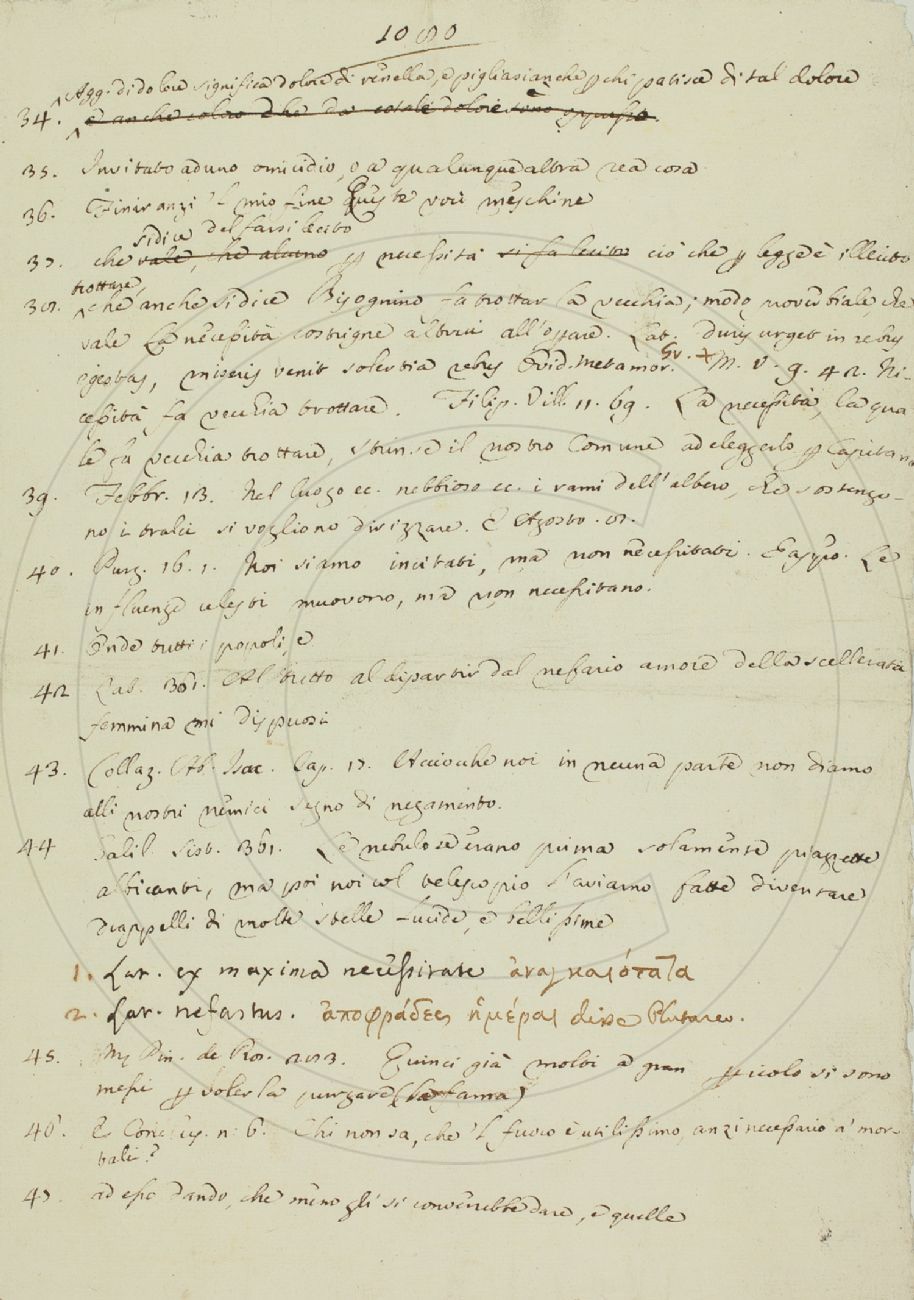 1080
Agg. di dolore significa dolore di renella, e pigliasi anche p chi patisce di tal dolore
34. e anche coloro che da cotale dolore sono
35. Invitato ad uno omicidio, o a qualunque altra rea cosa
36. Finir anzi 'l mio fine queste voci meschine
si dice del farsi lecito
37. che vale, che alcuno p necessità si fa lecito ciò che p legge è illecito
trottare,
38. che anche si dice Bisognino fa trottar la vecchia; modo proverbiale, che
vale La necessità costrigne altrui all'oprare. Lat. duris urgens in rebus
egestas, miseris venit solertia rebus Ovid. Metamor. Gr. + M. V. 9. 42. Ni-
cessità fa vecchia trottare. Filip. Vill. 11. 69. La necessità, la qua
le fa vecchia trottare, strinse il nostro Comune ad eleggerlo p Capitano
39. Febbr. 13. Nel luogo ec. nebbioso ec. i rami dell'albero, che sostengo-
no i tralci si vogliono dirizzare. E Agosto. 8.
40. Purg. 16. 1. Noi siamo incitati, ma non necessitati. E appo. Le
influenze celesti muovono, ma non necessitano.
41. Onde tutti i popoli, e
42 Lab. 361. Al tutto al dipartir dal nefario amore della scellerata
femmina mi disposi
43. Collaz. Ab. Isac. Cap. 17. Acciocche noi in neuna parte non diamo
alli nostri nemici segno di negamento.
44 Galil. Sist. 361. Le nebulose erano prima solamente piazzette
albicanti, ma poi noi col telescopio l'aviamo fatte diventare
drappelli di molte stelle lucide, e bellissime
1. Lat. ex maxima necessitate ἀναγκαιότατα
2. Lat. nefastus. ἀποφράδες ἡμέραι disse Plutarco.
45. Mſ. Pin. de Ros. 283. Quinci già molti a gran pericolo si sono
messi p volerla purgare (la fama)
46. E n. 6. Chi non sa, che 'l fuoco è utilissimo, anzi necessario a' mor-
tali?
47. ad esso dando, che meno gli si converrebbe dare, e quelle